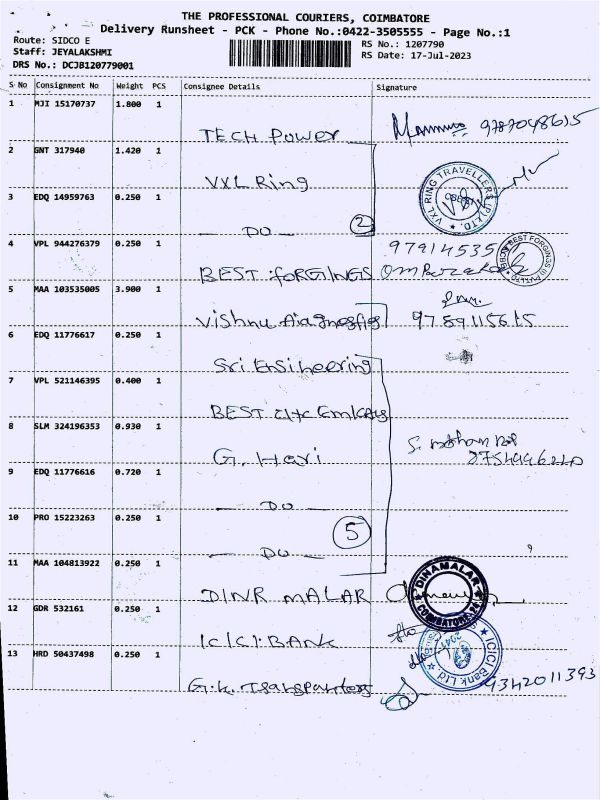 THE PROFESSIONAL COURIERS, COIMBATORE
Delivery Runsheet - PCK - Phone No.:0422-3505555 - Page No.:1
Route: SIDCO E
RS No.: 1207790
Staff: JEYALAKSHMI
RS Date: 17-Jul-2023
DRS No.: DCJB120779001
S No Consignment No Weight PCS Consignee Details Signature
1 MJI 15170737 1.800 1
TECH Power 9787048615
2 GNT 317940 1.420 1
VXL Ring
VXL RING TRAVELLERS (P) LTD.
3 EDQ 14959763 0.250 1
DO 2
4 VPL 944276379 0.250 1
97914535
BEST FORGINGS
BEST FORGINGS (I) PVT LTD
5 MAA 103535005 3.900 1
Vishnu 9789115615
6 EDQ 11776617 0.250 1
Sri Ensineering
7 VPL 521146395 0.400 1
BEST
8 SLM 324196353 0.930 1
G. Hari
9 EDQ 11776616 0.720 1
DO
10 PRO 15223263 0.250 1
5
DO
11 MAA 104813922 0.250 1
DINAMALAR
COIMBATORE
DINR MALAR
12 GDR 532161 0.250 1
ICICI BANK
ICICI Bank Ltd.
13 HRD 50437498 0.250 1
G.K. 9342011393